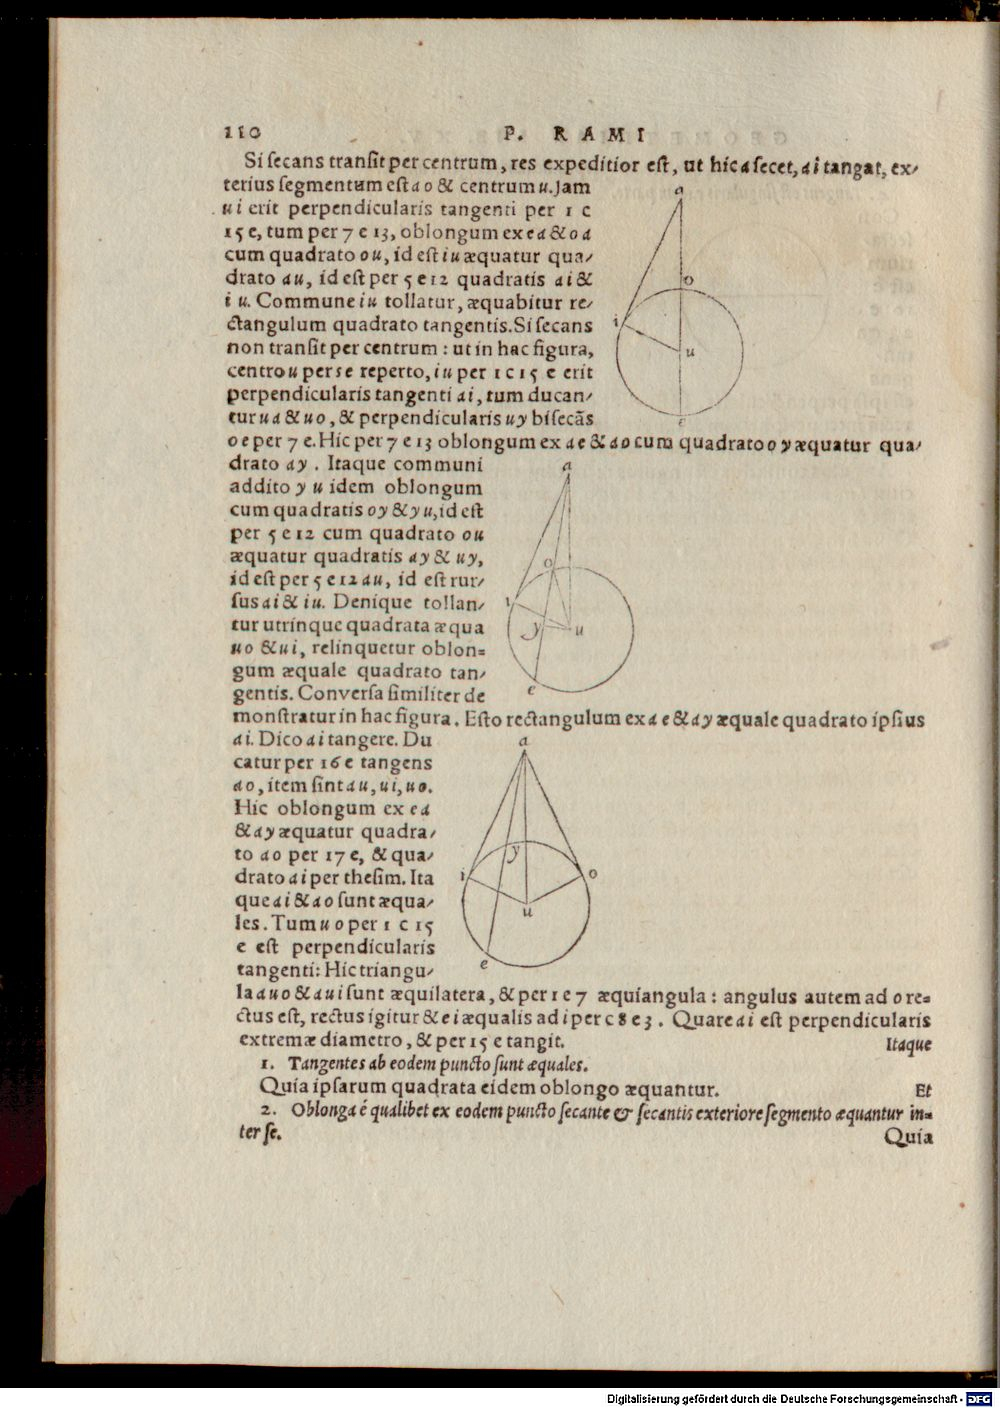 110 P. RAMI
Si secans transit per centrum, res expeditior est, ut hic a secet, ai tangat, ex-
terius segmentum est ao & centrum u. Jam
ui erit perpendicularis tangenti per 1 c
15 e, tum per 7 e 13, oblongum ex ea & oa
cum quadrato ou, id est iu æquatur qua-
drato au, id est per 5 e 12 quadratis ai &
iu. Commune iu tollatur, æquabitur re-
ctangulum quadrato tangentis. Si secans
non transit per centrum: ut in hac figura,
centro u per se reperto, iu per 1 c 15 e erit
perpendicularis tangenti ai, tum ducan-
tur ua & uo, & perpendicularis uy bisecās
oe per 7 e. Hic per 7 e 13 oblongum ex ae & ao cum quadrato oy æquatur qua-
drato ay. Itaque communi
addito yu idem oblongum
cum quadratis oy & yu, id est
per 5 e 12 cum quadrato ou
æquatur quadratis ay & uy,
id est per 5 e 12 au, id est rur-
sus ai & iu. Denique tollan-
tur utrinque quadrata æqua
uo & ui, relinquetur oblon=
gum æquale quadrato tan-
gentis. Conversa similiter de
monstratur in hac figura. Esto rectangulum ex ae & ay æquale quadrato ipsius
ai. Dico ai tangere. Du
catur per 16 e tangens
ao, item sint au, ui, uo.
Hic oblongum ex ea
& ay æquatur quadra-
to ao per 17 e, & qua-
drato ai per thesim. Ita
que ai & ao sunt æqua-
les. Tum uo per 1 c 15
e est perpendicularis
tangenti: Hic triangu-
la auo & aui sunt æquilatera, & per 1 e 7 æquiangula: angulus autem ad o re=
ctus est, rectus igitur & ei æqualis ad i per c 8 e 3. Quare ai est perpendicularis
extremæ diametro, & per 15 e tangit. Itaque
1. Tangentes ab eodem puncto sunt æquales.
Quia ipsarum quadrata eidem oblongo æquantur. Et
2. Oblonga é qualibet ex eodem puncto secante & secantis exteriore segmento æquantur in=
ter se. Quia
a
o
i
u
e
a
o
i
y
u
e
a
y
i
o
u
e
Digitalisierung gefördert durch die Deutsche Forschungsgemeinschaft - DFG